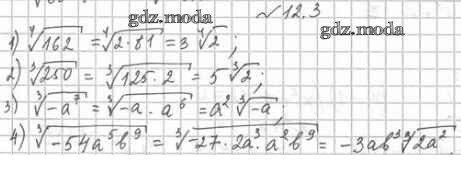 №12.3
gdz.moda
gdz.moda
1) ⁴√162 = ⁴√2·81 = 3 ⁴√2;
2) ³√250 = ³√125·2 = 5 ³√2;
3) ³√-a⁷ = ³√-a·a⁶ = a² ³√-a;
4) ³√-54a⁵b⁹ = ³√-27·2a³·a²b⁹ = -3ab³ ³√2a²